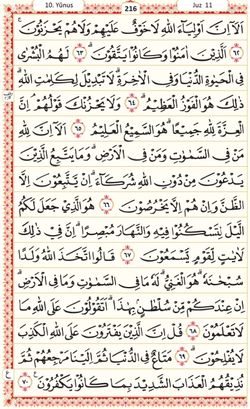 10. Yûnus
216
Juz 11
اَلَآ اِنَّ اَوْلِيَآءَ اللّٰهِ لَا خَوْفٌ عَلَيْهِمْ وَلَا هُمْ يَحْزَنُوْنَ ۚ
﴿٦٢﴾ اَلَّذِيْنَ اٰمَنُوْا وَكَانُوْا يَتَّقُوْنَ ۗ ﴿٦٣﴾ لَهُمُ الْبُشْرٰى
فِى الْحَيٰوةِ الدُّنْيَا وَفِى الْاٰخِرَةِ ۗ لَا تَبْدِيْلَ لِكَلِمٰتِ اللّٰهِ ۗ
ذٰلِكَ هُوَ الْفَوْزُ الْعَظِيْمُ ۗ ﴿٦٤﴾ وَلَا يَحْزُنْكَ قَوْلُهُمْ ۘ اِنَّ
الْعِزَّةَ لِلّٰهِ جَمِيْعًا ۗ هُوَ السَّمِيْعُ الْعَلِيْمُ ﴿٦٥﴾ اَلَآ اِنَّ لِلّٰهِ
مَنْ فِى السَّمٰوٰتِ وَمَنْ فِى الْاَرْضِ ۗ وَمَا يَتَّبِعُ الَّذِيْنَ
يَدْعُوْنَ مِنْ دُوْنِ اللّٰهِ شُرَكَآءَ ۗ اِنْ يَّتَّبِعُوْنَ اِلَّا
الظَّنَّ وَاِنْ هُمْ اِلَّا يَخْرُصُوْنَ ﴿٦٦﴾ هُوَ الَّذِيْ جَعَلَ لَكُمُ
الَّيْلَ لِتَسْكُنُوْا فِيْهِ وَالنَّهَارَ مُبْصِرًا ۗ اِنَّ فِيْ ذٰلِكَ
لَاٰيٰتٍ لِّقَوْمٍ يَّسْمَعُوْنَ ﴿٦٧﴾ قَالُوا اتَّخَذَ اللّٰهُ وَلَدًا
سُبْحٰنَهٗ ۗ هُوَ الْغَنِيُّ ۗ لَهٗ مَا فِى السَّمٰوٰتِ وَمَا فِى الْاَرْضِ ۗ
اِنْ عِنْدَكُمْ مِّنْ سُلْطٰنٍۭ بِهٰذَا ۗ اَتَقُوْلُوْنَ عَلَى اللّٰهِ مَا
لَا تَعْلَمُوْنَ ﴿٦٨﴾ قُلْ اِنَّ الَّذِيْنَ يَفْتَرُوْنَ عَلَى اللّٰهِ الْكَذِبَ
لَا يُفْلِحُوْنَ ۗ ﴿٦٩﴾ مَتَاعٌ فِى الدُّنْيَا ثُمَّ اِلَيْنَا مَرْجِعُهُمْ ثُمَّ
نُذِيْقُهُمُ الْعَذَابَ الشَّدِيْدَ بِمَا كَانُوْا يَكْفُرُوْنَ ࣖ ﴿٧٠﴾